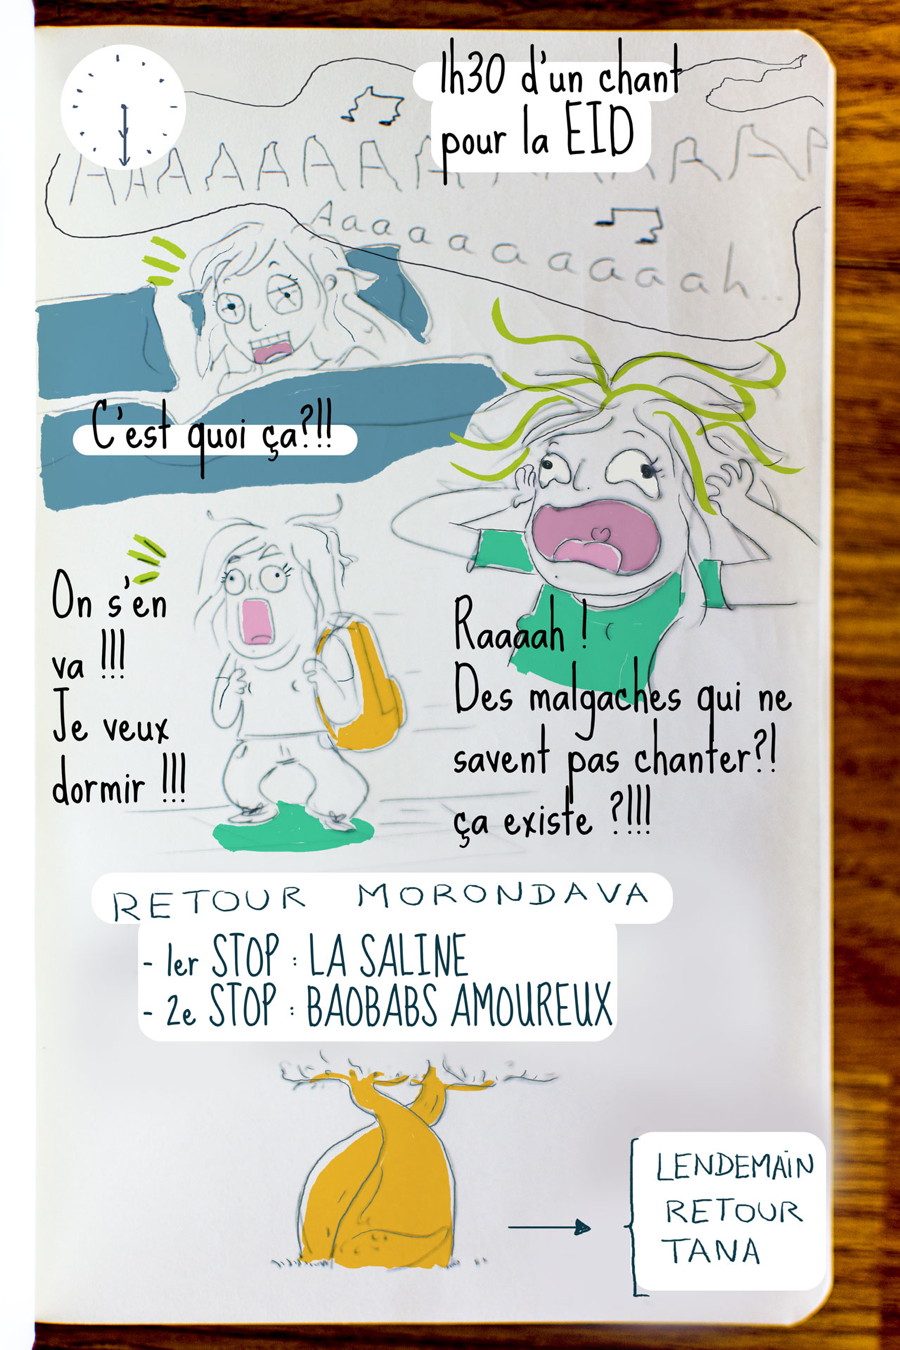 1h30 d'un chant
pour la EID
AAAAAAAAAAAAAAAA
Aaaaaaaaaah..
C'est quoi ça?!!
On s'en
va !!!
Je veux
dormir !!!
Raaaah !
Des malgaches qui ne
savent pas chanter?!
ça existe ?!!!
RETOUR MORONDAVA
- 1er STOP : LA SALINE
- 2e STOP : BAOBABS AMOUREUX
LENDEMAIN
RETOUR
TANA